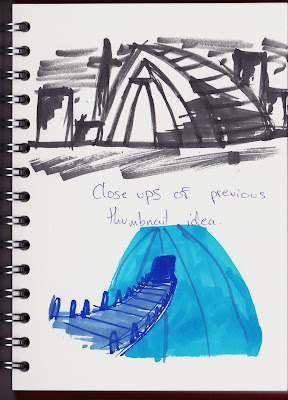 Close ups of previous
thumbnail idea.